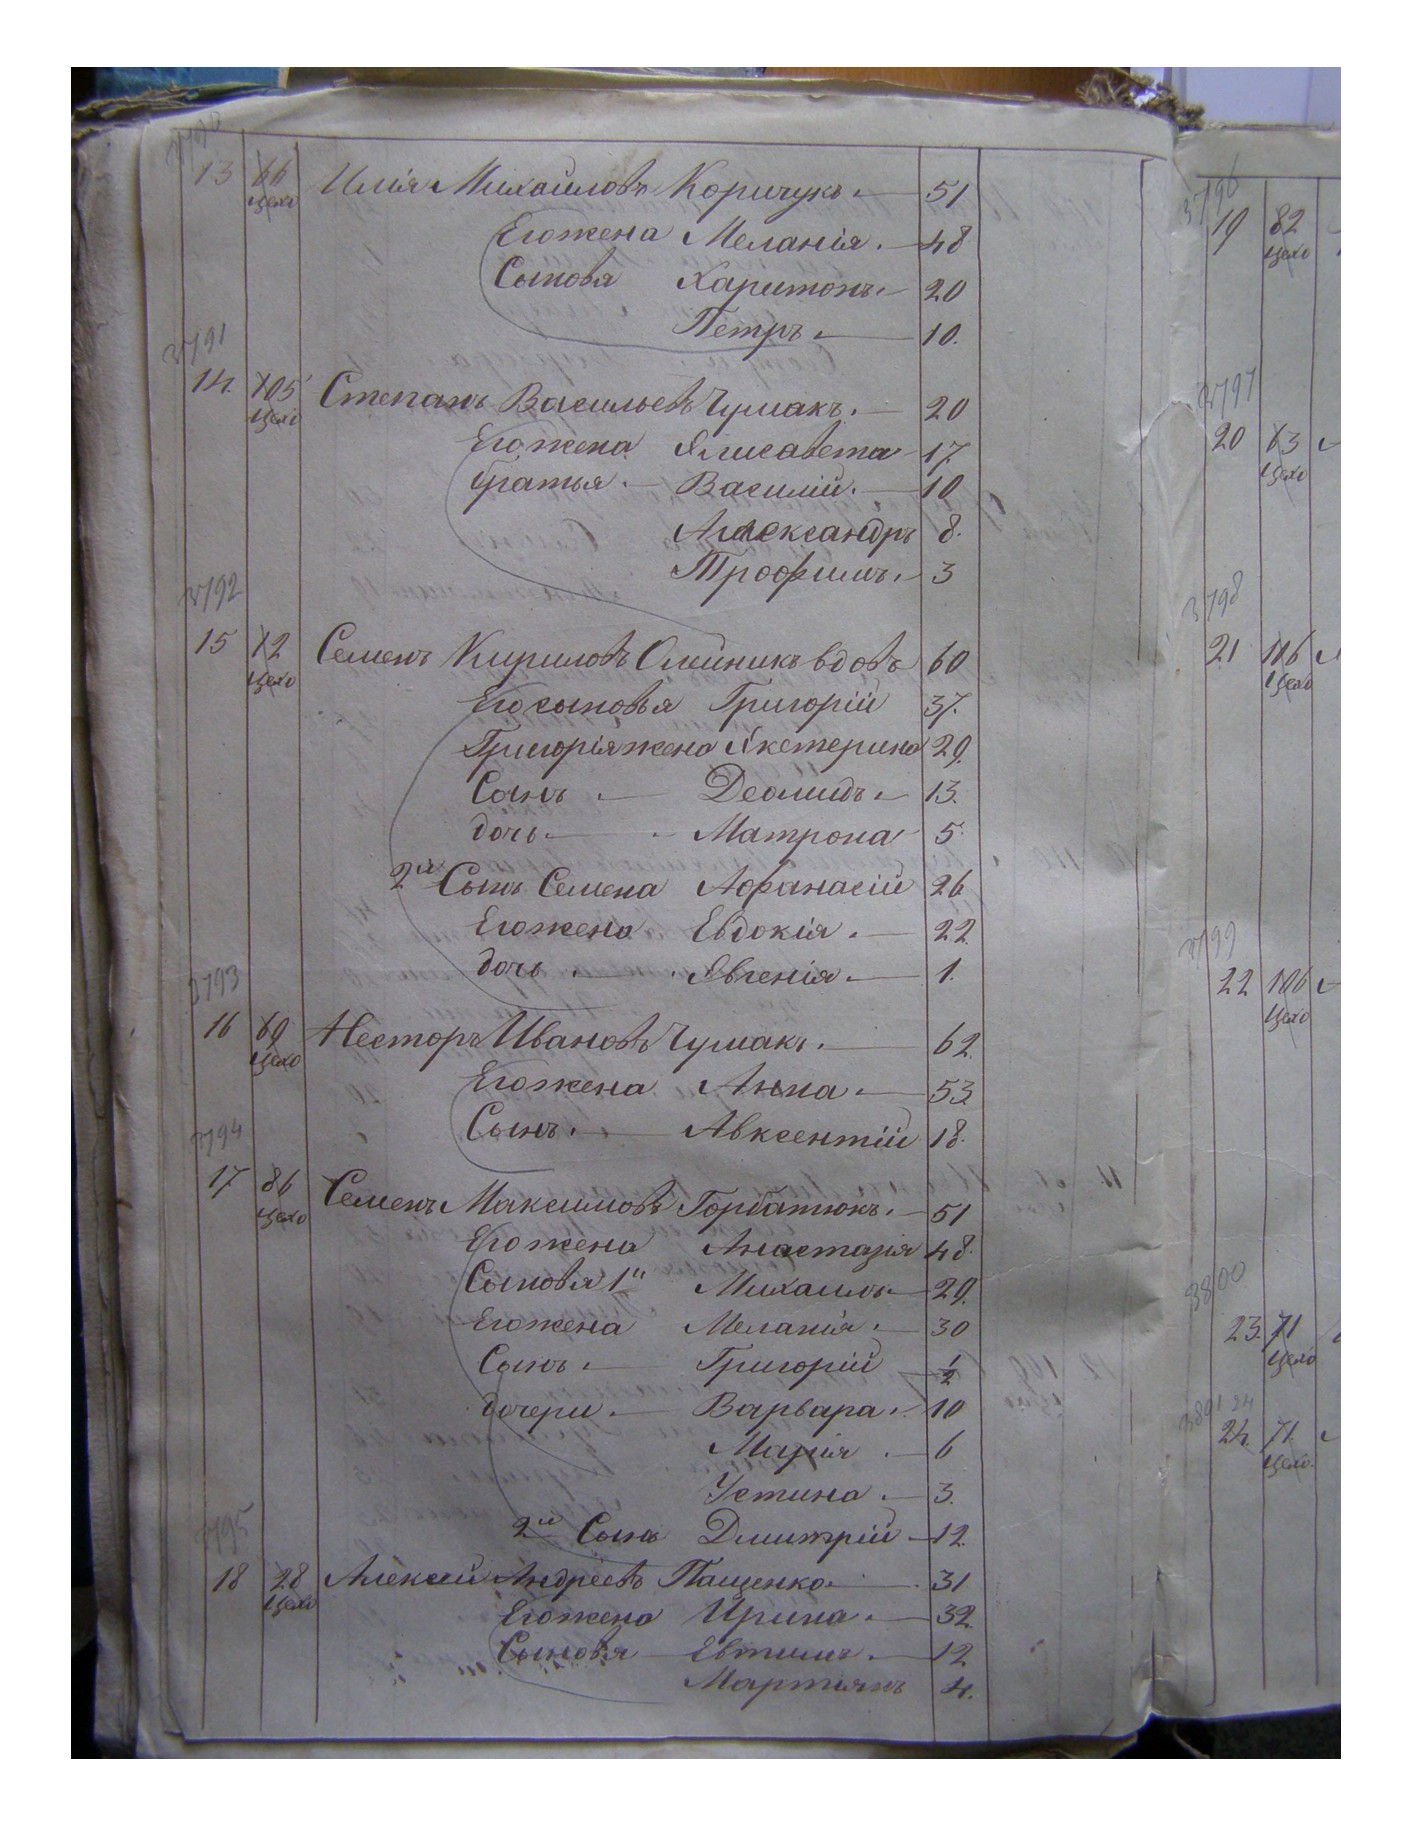 3790
13 66 Илія Михайловъ Коричукъ. — 51
цехо
Его жена Меланія. — 48
Сыновя Харитонъ. — 20
Петръ. — 10.
3791
14. 105 Степанъ Васильевъ Чумакъ. — 20
цехо
Его жена Элисавета — 17
братья. — Василій. — 10
Александръ 8.
Трофимъ. — 3
3792
15 12 Семенъ Кириловъ Олейникъ вдовъ 60
цехо
Его сыновья Григорій 37.
Григорія жена Екатерина 29.
Сынъ — Деомидъ. — 13.
дочь — Матрона 5.
2й Сынъ Семена Афанасій 26
Его жена Евдокія. — 22.
дочь. — Явгенія. — 1.
3793
16 69 Несторъ Ивановъ Чумакъ. — 62.
цехо
Его жена Анна. — 53.
Сынъ. — Авксентій 18.
3794
17 86 Семенъ Максимовъ Горбатюкъ. — 51
цехо
Его жена Анастазія 48.
Сыновя 1й Михаилъ — 29.
Его жена Меланія. — 30
Сынъ. — Григорій — 1/2
дочери. — Варвара. — 10
Марія. — 6
Устина. — 3.
2й Сынъ Дмитрій — 12.
3795
18 28 Алексей Андреевъ Пащенко. — 31
цехо
Его жена Ирина. — 32.
Сыновя — Евтимъ. — 12
Мартиянъ 4.
3796
19 82
цехо
3797
20 63
цехо
3798
21 116
цехо
3799
22 106
цехо
3800
23. 71
цехо
3801 24
24. 71
цехо.